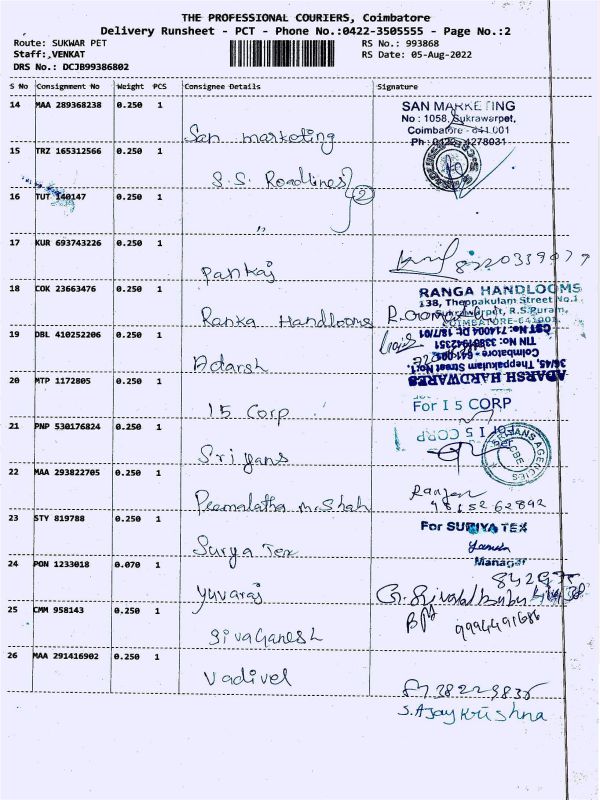 THE PROFESSIONAL COURIERS, Coimbatore
Delivery Runsheet - PCT - Phone No.:0422-3505555 - Page No.:2
Route: SUKWAR PET RS No.: 993868
Staff:,VENKAT RS Date: 05-Aug-2022
DRS No.: DCJB99386802
S No Consignment No Weight PCS Consignee Details Signature
14 MAA 289368238 0.250 1 San marketing
SAN MARKETING
No : 1058, Sukrawarpet,
Coimbatore - 641 001
Ph : 0422 - 4278031
15 TRZ 165312566 0.250 1 S.S. Roadlines
2
16 TUT 140147 0.250 1 "
17 KUR 693743226 0.250 1 Pankaj
18 COK 23663476 0.250 1 Ranka Handlooms
RANGA HANDLOOMS
138, Theppakulam Street No.1
Sukrawarpet, R.S.Puram,
COIMBATORE-641001.
19 DBL 410252206 0.250 1 Adarsh
ADARSH HARDWARES
36/45, Theppakulam Street No:1,
Coimbatore - 641 001
TIN No: 33981942351
CST No: 714004 Dt: 18/7/01
20 MTP 1172805 0.250 1 15 Corp
For I 5 CORP
21 PNP 530176824 0.250 1 Sriyans
For I 5 CORP
SRIYANS AGENCIES
CBE
22 MAA 293822705 0.250 1 Peemalatha m. Shah
Ranjan
9865262892
23 STY 819788 0.250 1 Surya Tex
For SURIYA TEX
Manager
24 PON 1233018 0.070 1 Yuvaraj
25 CMM 958143 0.250 1 Sivaganesh
9994491686
26 MAA 291416902 0.250 1 Vadivel
S.Ajay Krishna